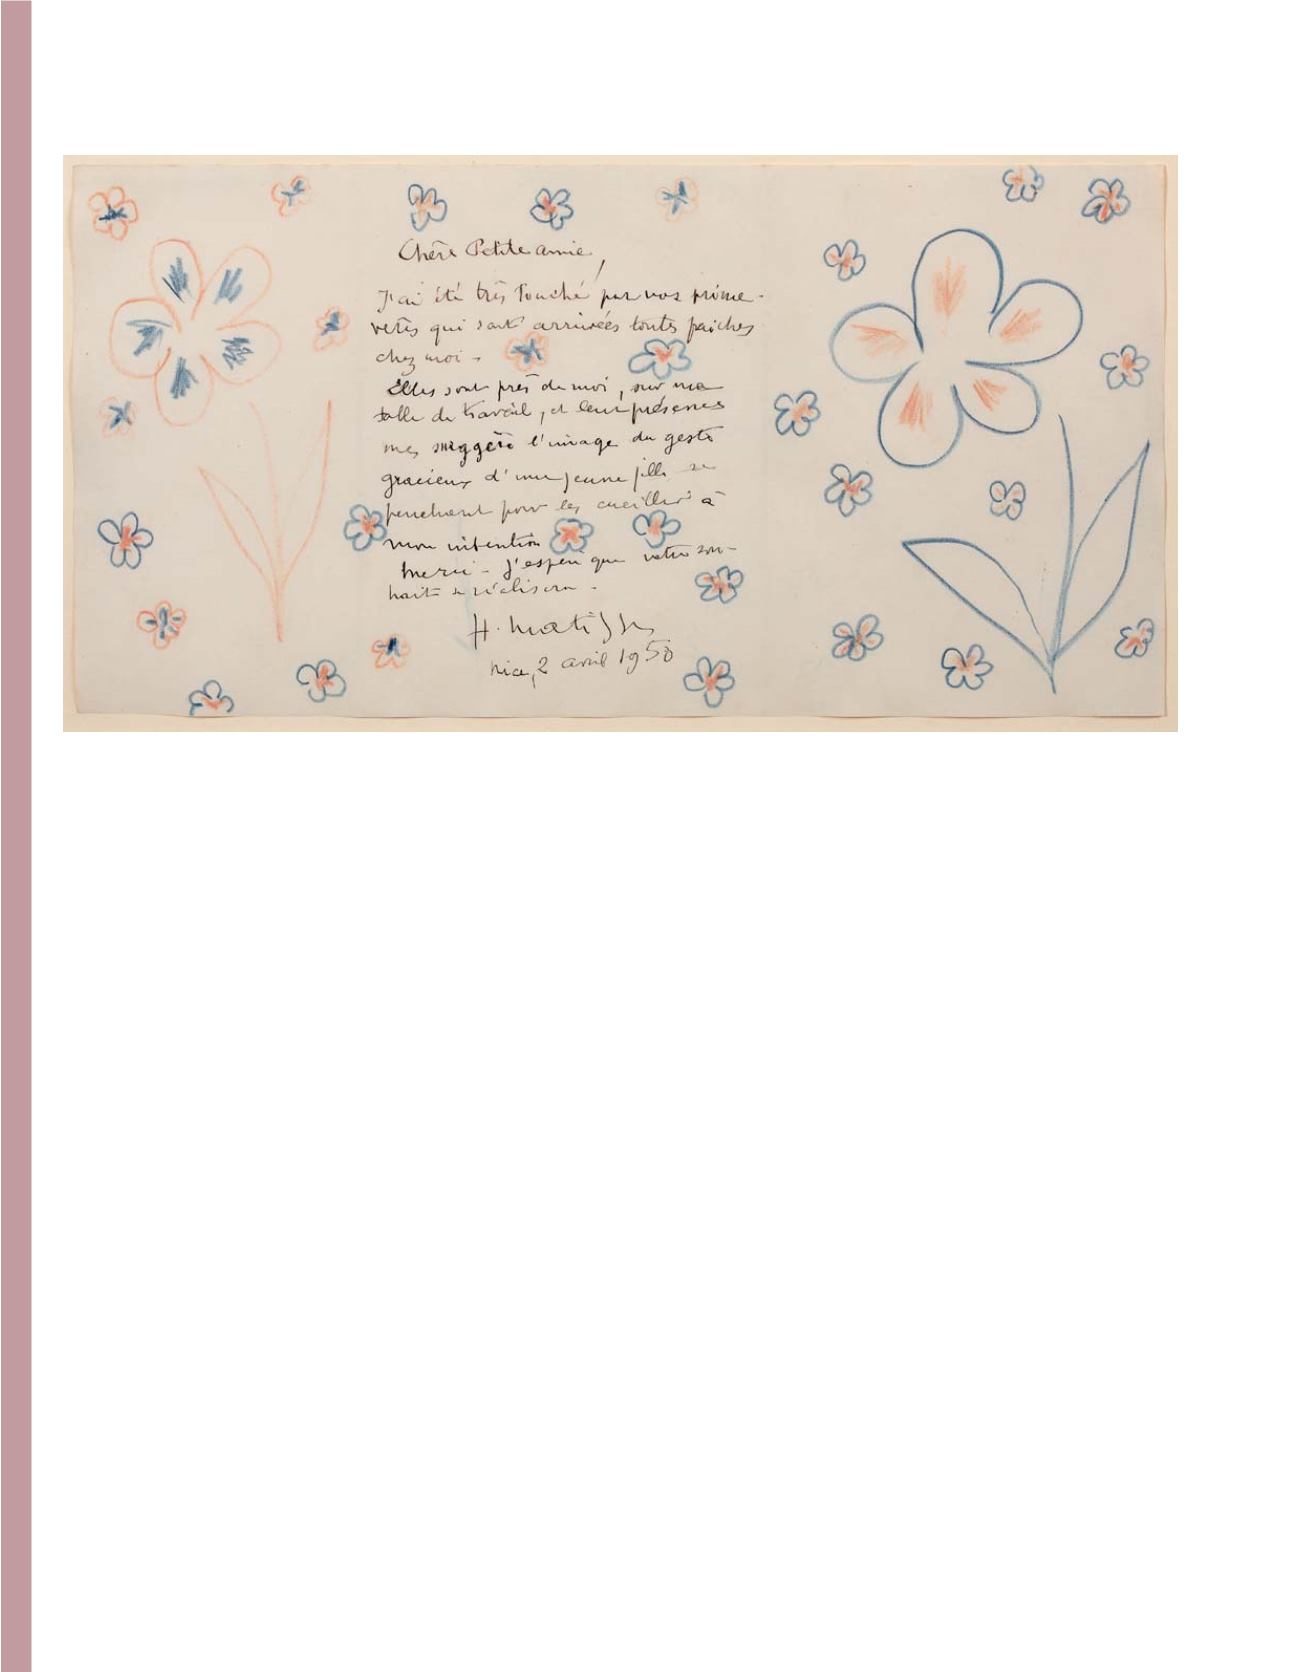 Chère Petite amie,
J'ai été très touché par vos prime-
vères qui sont arrivées toutes faiches
chez moi -
Elles sont près de moi, sur ma
table de travail, et leur présence
me suggère l'image du geste
gracieux d'une jeune fille se
penchant pour les cueillir à
mon intention
Merci - J'espère que votre sou-
hait se réalisera -
H. Matisse
Nice, 2 avril 1950